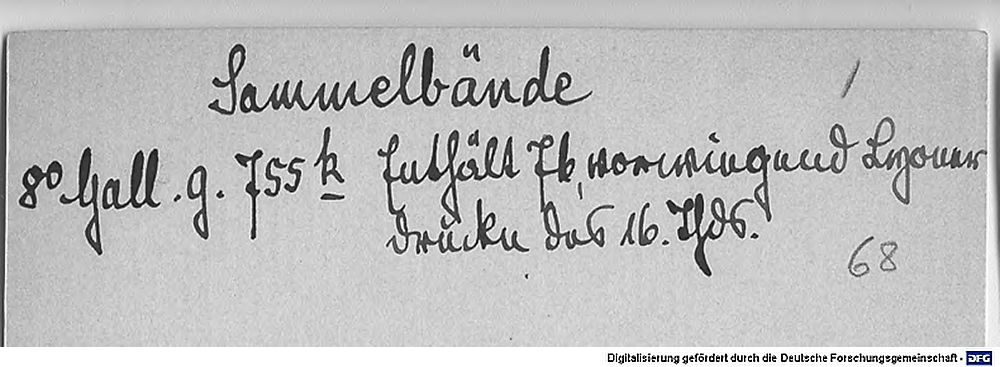 Sammelbände
/
8° Gall. g. 755 k Enthält 76, vorwiegend Lyoner
drucke des 16. Jhds.
68
Digitalisierung gefördert durch die Deutsche Forschungsgemeinschaft - DFG